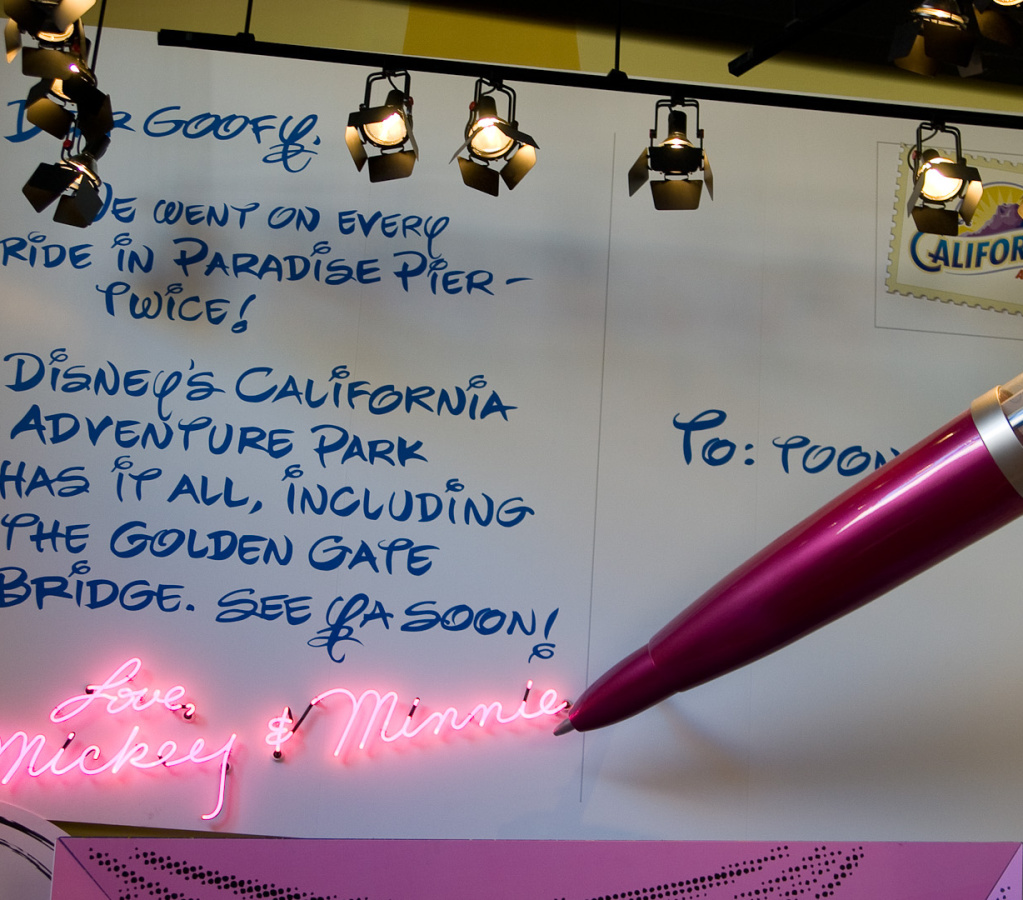 GOOFY,
WE WENT ON EVERY
RIDE IN PARADISE PIER -
TWICE!
DISNEY'S CALIFORNIA
ADVENTURE PARK
HAS IT ALL, INCLUDING
THE GOLDEN GATE
BRIDGE. SEE YA SOON!
Love,
Mickey & Minnie
TO: